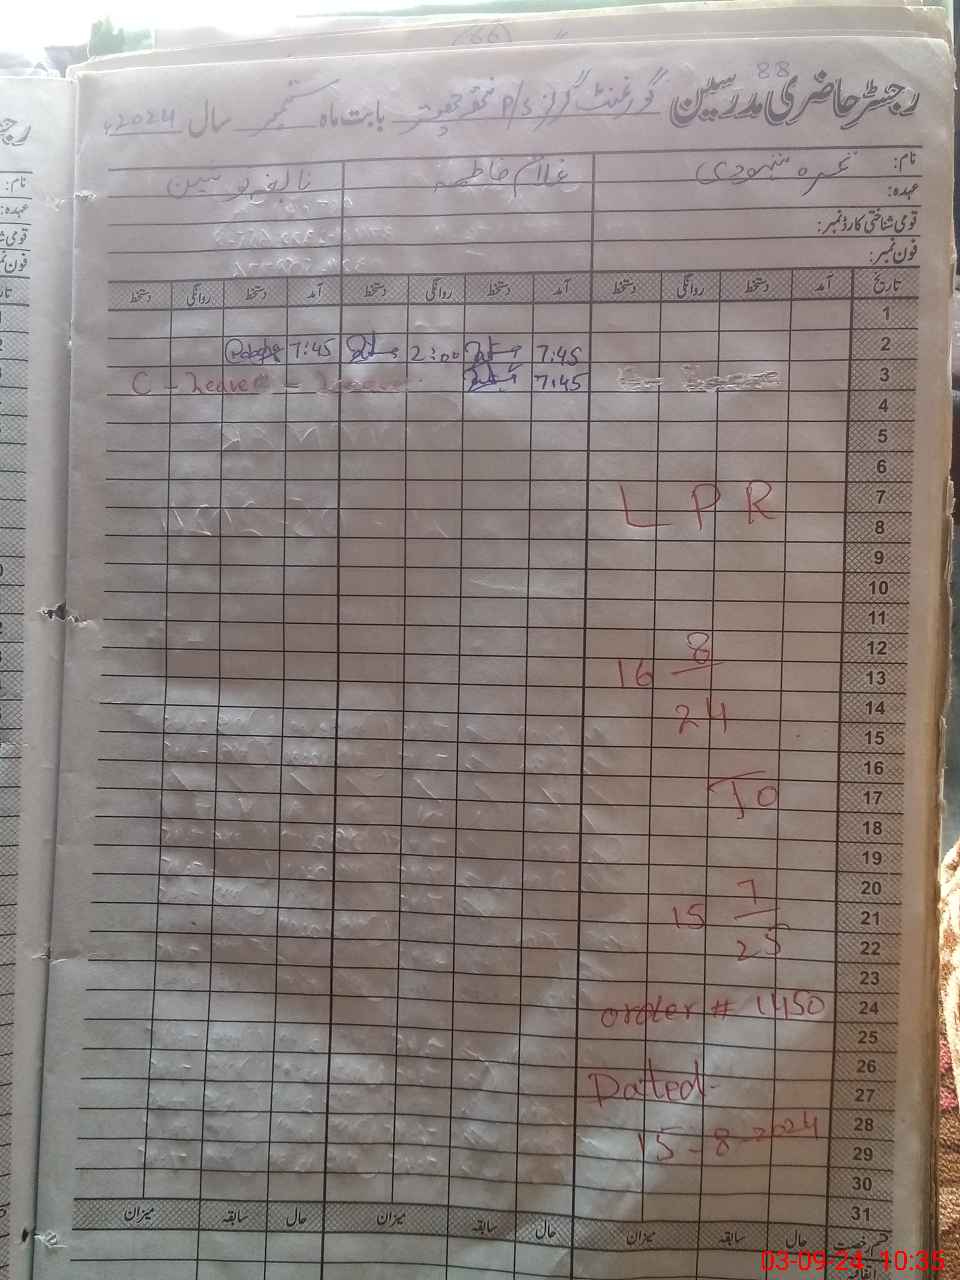 88
رجسٹر حاضری مدرسین گورنمنٹ گرلز P/S بابت ماہ ستمبر سال 2024ء
نام: غلام فاطمہ
عہدہ:
قومی شناختی کارڈ نمبر:
فون نمبر:
تاریخ آمد دستخط روانگی دستخط آمد دستخط روانگی دستخط آمد دستخط روانگی دستخط
1
2 7:45 2:00 7:45
3 7:45 C - Leave - Leave
4
5
6
7
L P R
8
9
10
11
12
16 8/24
13
14
15
16
17
To
18
19
20
15 7/25
21
22
23
24
order # 1450
25
26
27
Dated-
28
15-8-2024
29
30
31
حال سابقہ میزان حال سابقہ میزان حال سابقہ میزان
03-09-24 10:35